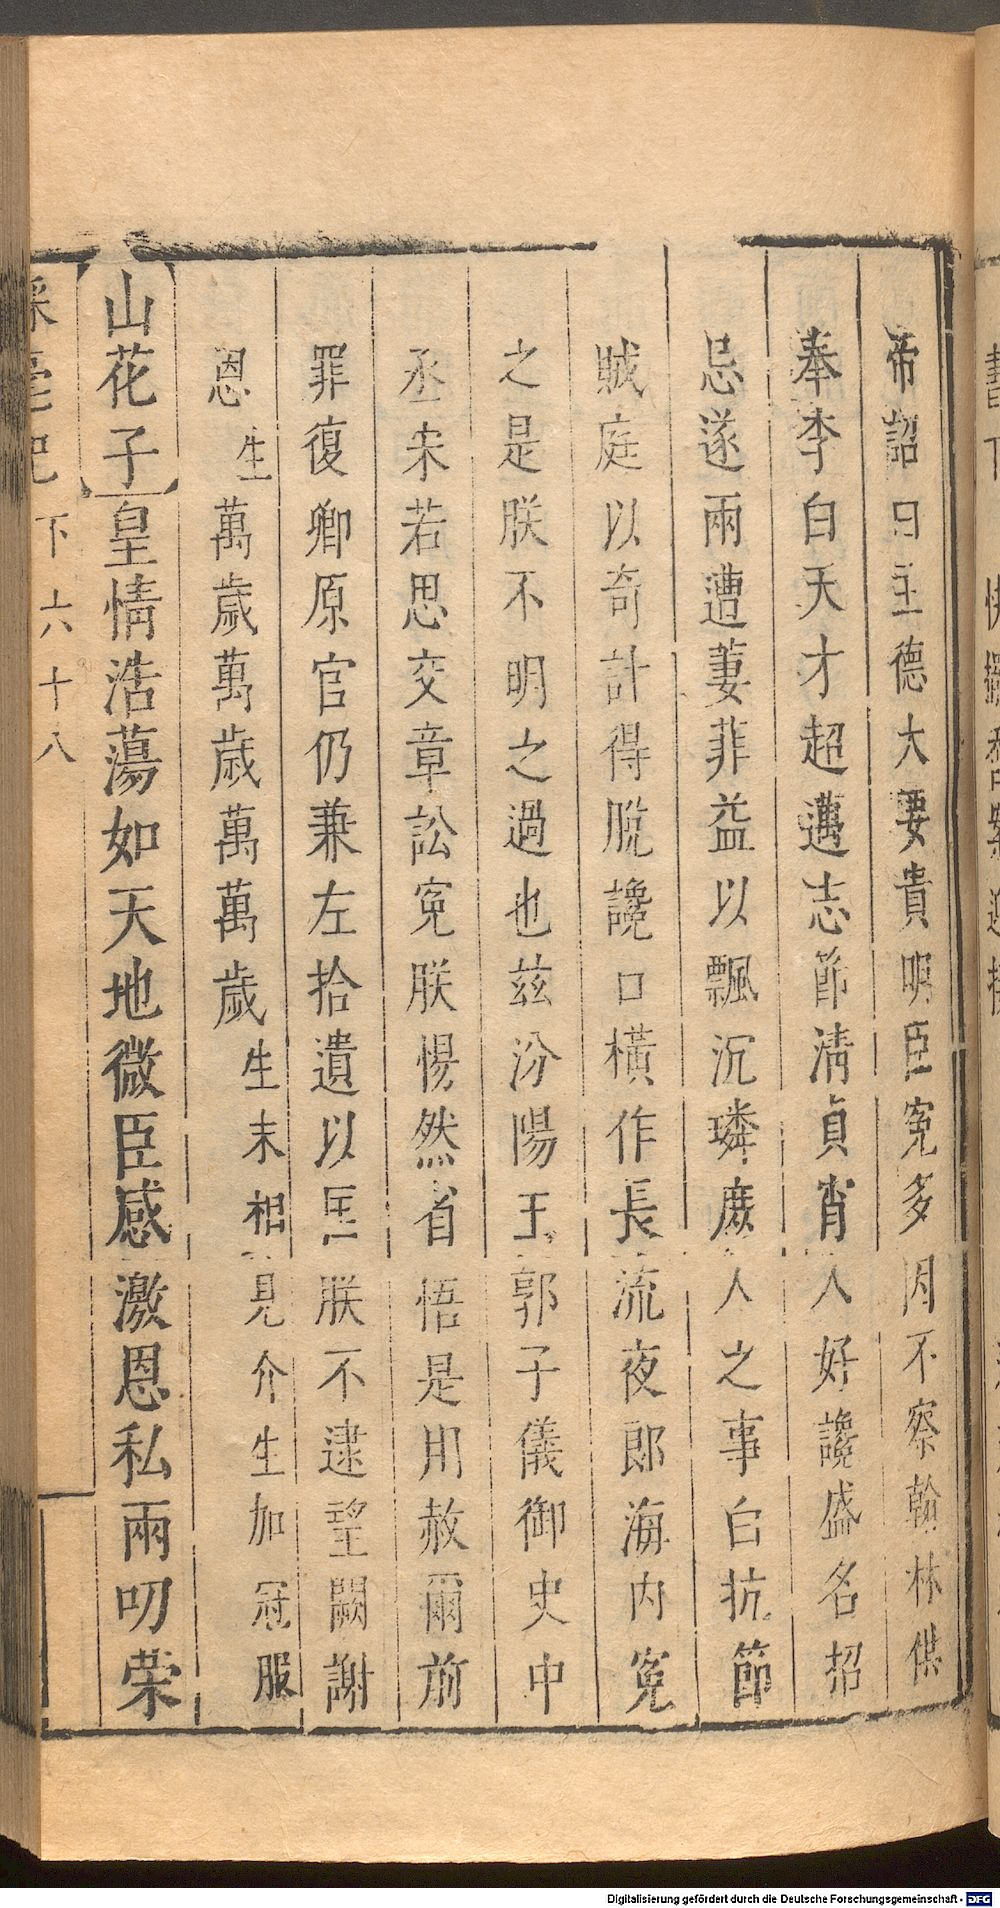 帝詔曰主德大要貴明臣寃多因不察翰林供
奉李白天才超邁志節清貞肖人好讒盛名招
忌遂兩遭萋菲益以飄沉璘庶人之事白抗節
賊庭以奇計得脫讒口橫作長流夜郎海内寃
之是朕不明之過也兹汾陽王郭子儀御史中
丞宋若思交章訟寃朕惕然省悟是用赦爾前
罪復卿原官仍兼左拾遺以匡朕不逮望闕謝
恩生萬歲萬歲萬萬歲生末相見介生加冠服
山花子皇情浩蕩如天地微臣感激恩私兩叨荣
彩毫記
下
六十八
Digitalisierung gefördert durch die Deutsche Forschungsgemeinschaft - DFG